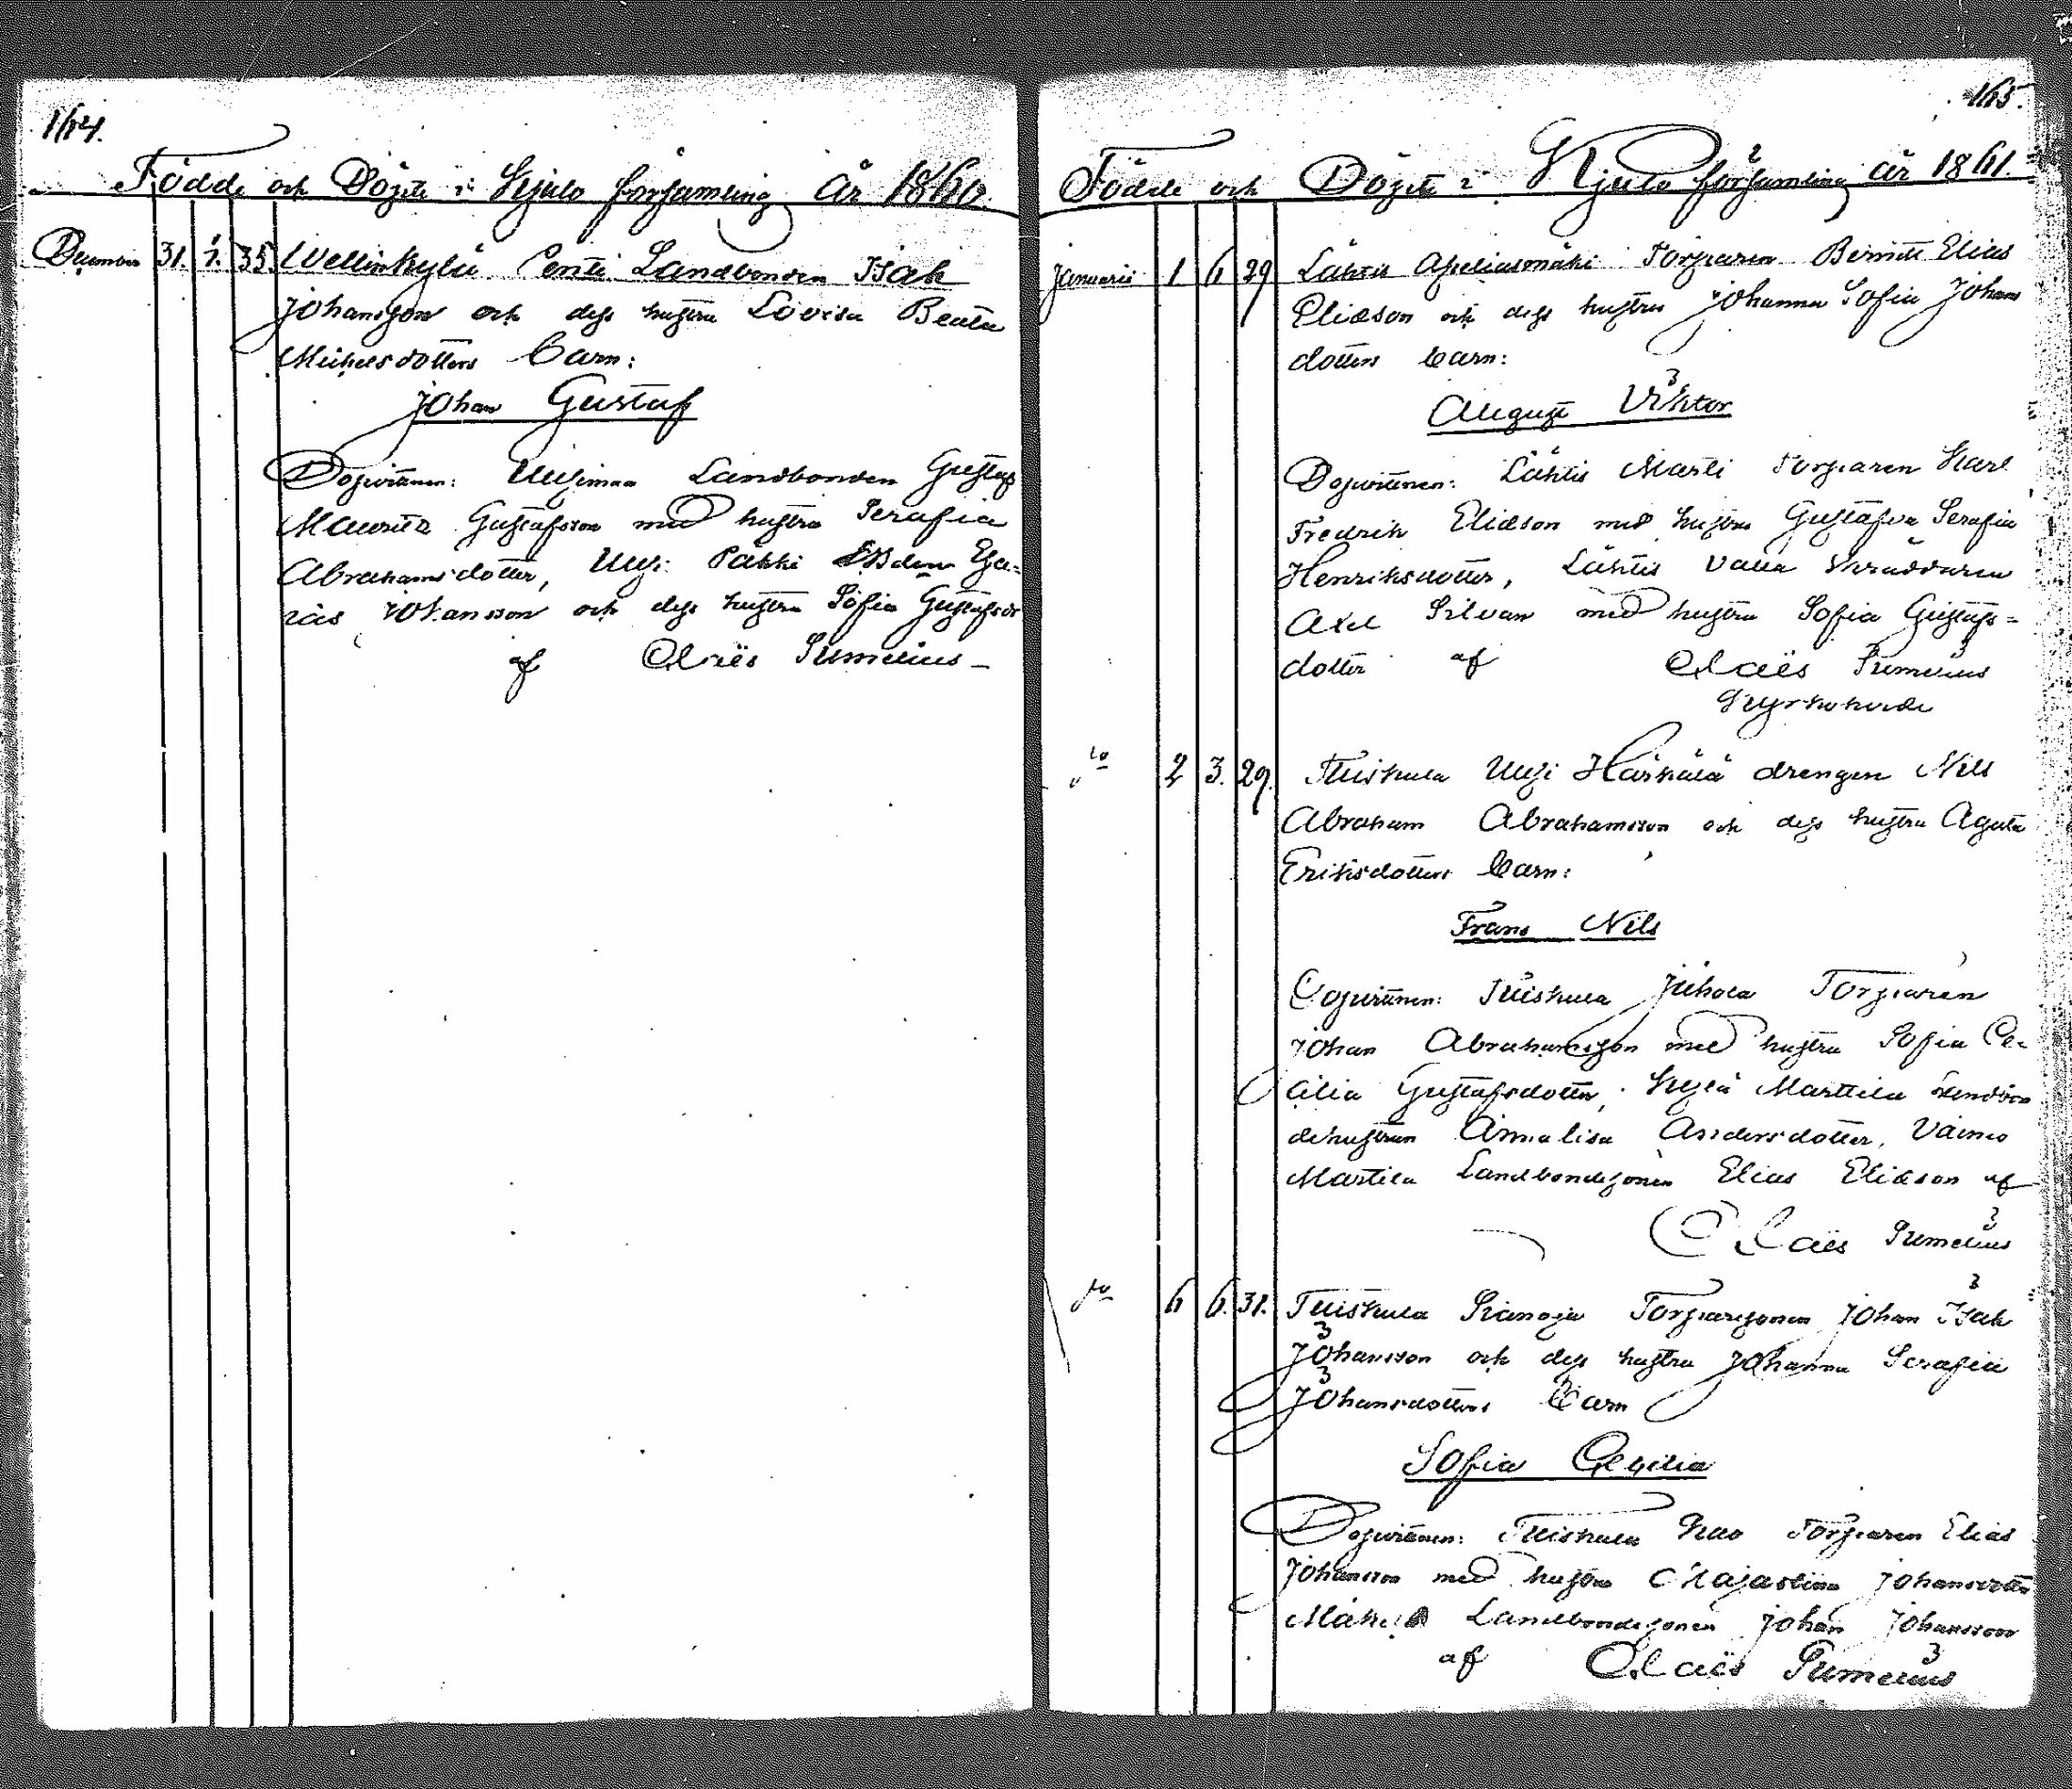 164.
Födde och Döpte i Kjulo församling År 1860.
December 31. 1. 35. Wellinkylä Penti Landbonden Isak
Johansson och dess hustru Lovisa Beata
Michelsdotters barn:
Johan Gustaf
Dopvittnen: Landbonden Gustaf
Mauritz Gustafsson med hustru Serafia
Abrahamsdotter, Uusi Pakki Esa=
ias Johansson och dess hustru Sofia Gustafsdr
af Claës Sumelius
165.
Födde och Döpte i Kjulo församling år 1861.
Januarii 1 6 29 Lähtis Torparen Elias
Eliasson och dess hustru Johanna Sofia Johans
dotters barn:
August Viktor
Dopvittnen: Lähtis Marti Torparen Karl
Fredrik Eliasson med hustru Gustafva Serafia
Henriksdotter, Lähtis Skräddaren
Axel Silvan med hustru Sofia Gustafs=
dotter af Claës Sumelius
Kyrkoherde
do 2 3. 29. Tuiskula Uusi Härkälä drengen Nils
Abraham Abrahamsson och dess hustru Agata
Eriksdotters barn:
Frans Nils
Dopvittnen: Tuiskula Juhola Torparen
Johan Abrahamsson med hustru Sofia Ce=
cilia Gustafsdotter, Marttila Landbon
dehustrun Annalisa Andersdotter, Vainio
Martila Landbondesonen Elias Eliasson af
Claës Sumelius
do 6 6. 31. Tuiskula Torparesonen Johan Isak
Johansson och dess hustru Johanna Serafia
Johansdotters barn
Sofia Cecilia
Dopvittnen: Tuiskula Torparen Elias
Johansson med hustru Majastina Johansdotter
Landbondesonen Johan Johansson
af Claës Sumelius